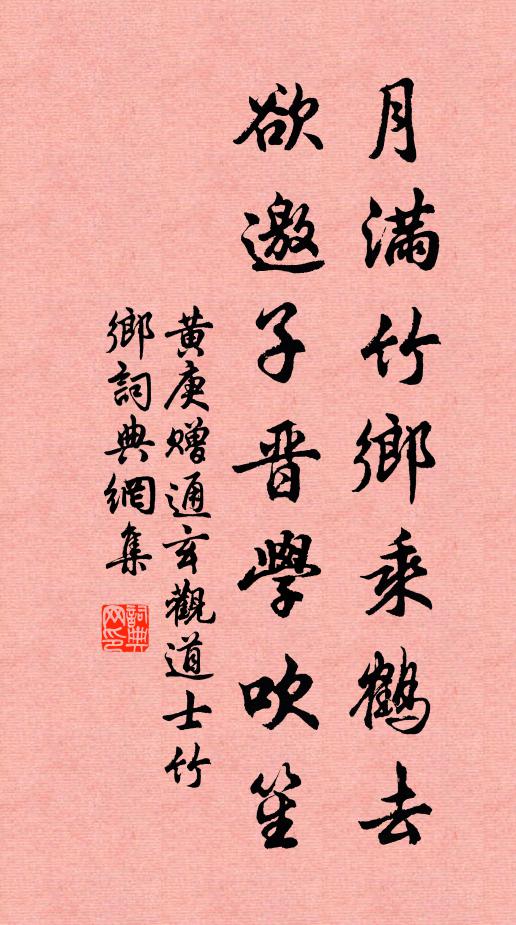 月滿竹鄉乘鶴去
欲邀子晉學吹笙
黃庚贈通玄觀道士竹
鄉詞典網集
詞典
网印